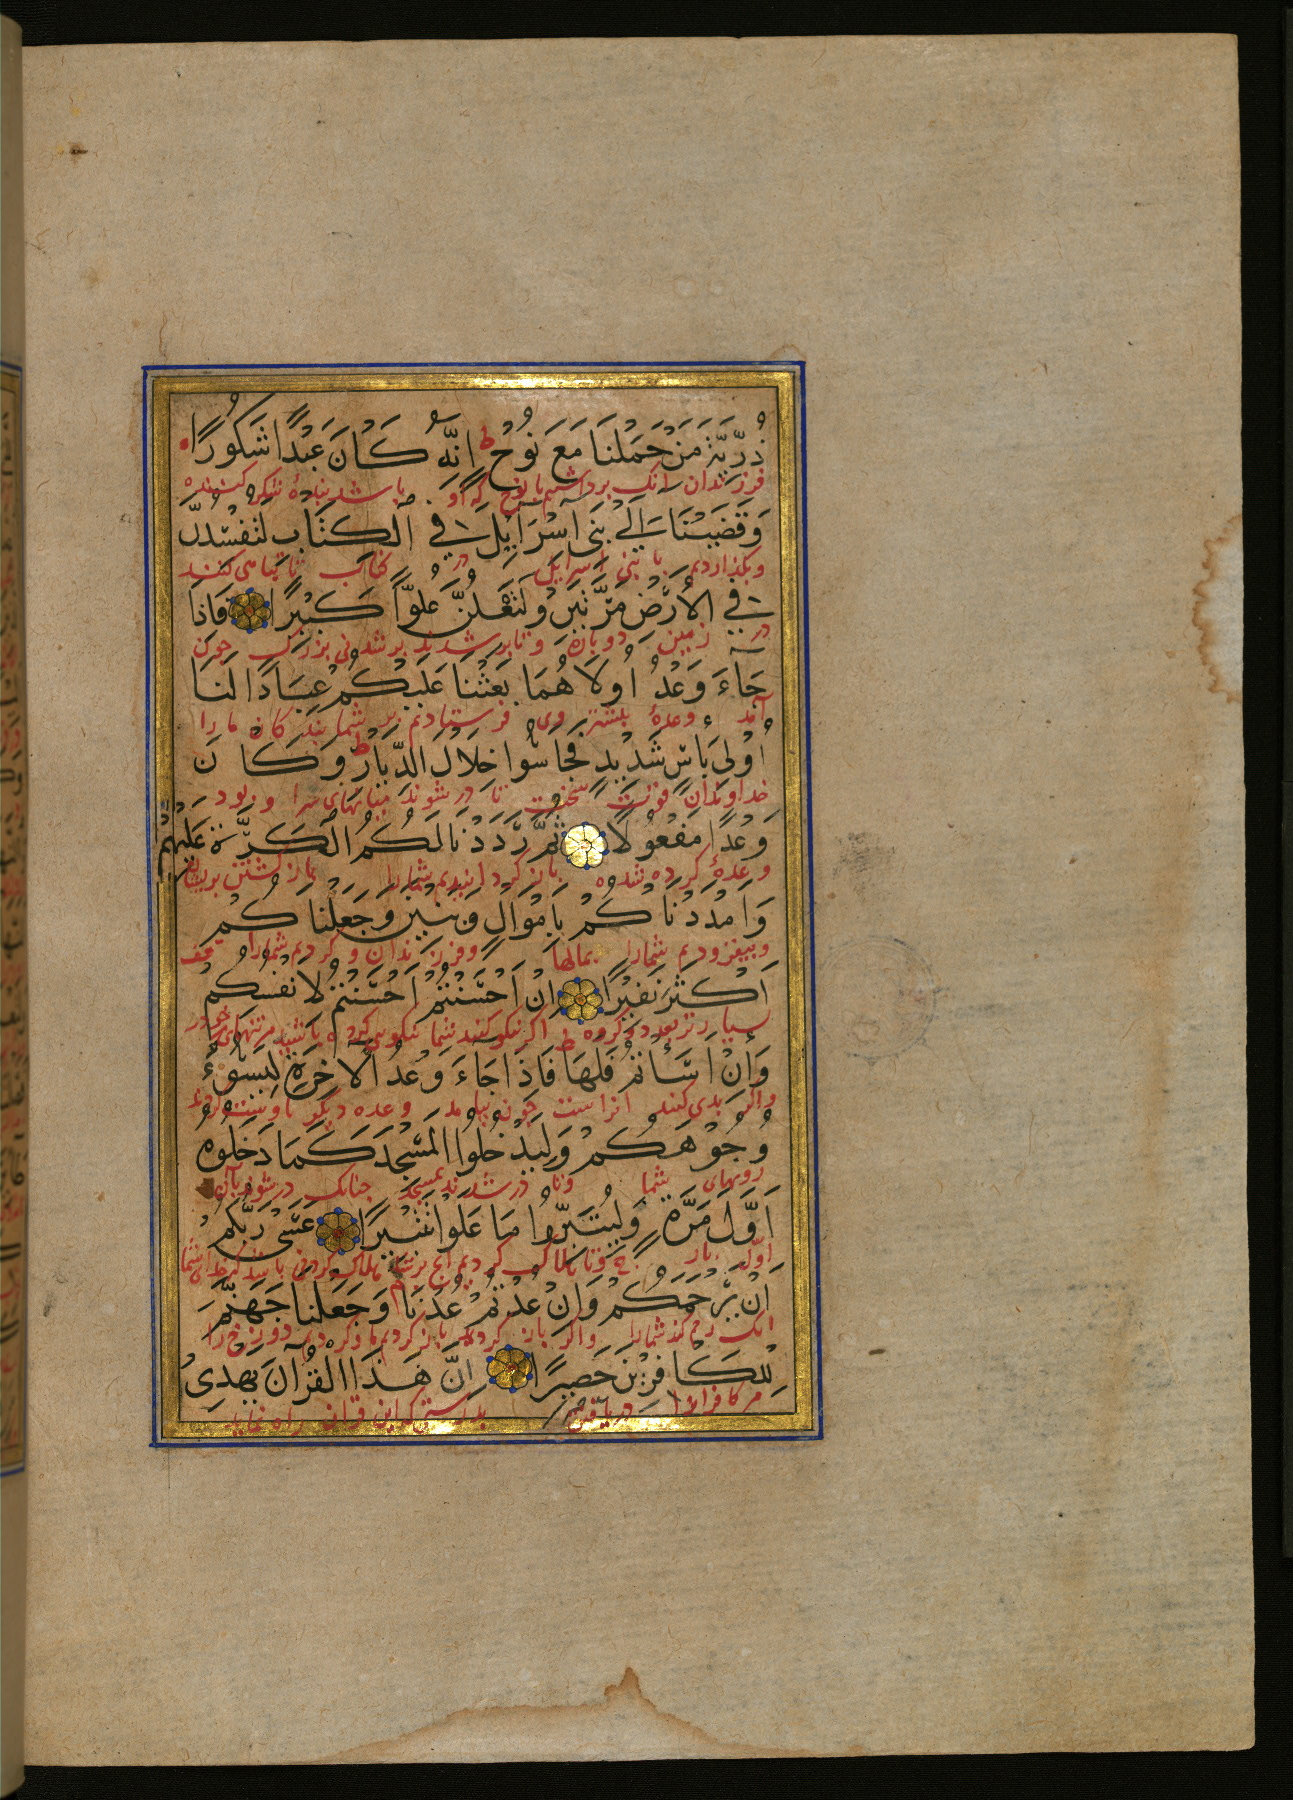 ذُرِّيَّةَ مَنْ حَمَلْنَا مَعَ نُوحٍ ط إِنَّهُ كَانَ عَبْدًا شَكُورًا
فرزندان انک برداشتیم با نوح که او باشد بندهٔ شکر کننده
وَقَضَيْنَا إِلَىٰ بَنِي إِسْرَائِيلَ فِي الْكِتَابِ لَتُفْسِدُنَّ
وبگذاردیم با بنی اسرایل در کتاب تا تباهی کنند
فِي الْأَرْضِ مَرَّتَيْنِ وَلَتَعْلُنَّ عُلُوًّا كَبِيرًا فَإِذَا
در زمین دوباره وتا برشدند برشدنی بزرک جون
جَاءَ وَعْدُ أُولَاهُمَا بَعَثْنَا عَلَيْكُمْ عِبَادًا لَنَا
آمد وعدهٔ فرستادیم بر شما بندکان مارا
أُولِي بَأْسٍ شَدِيدٍ فَجَاسُوا خِلَالَ الدِّيَارِ ط وَكَانَ
خداوندان قوت سخت تا در شوند میانهای سرا و بود
وَعْدًا مَفْعُولًا ثُمَّ رَدَدْنَا لَكُمُ الْكَرَّةَ عَلَيْهِمْ
وعدهٔ کرده شده باز کردانیدیم شمارا باز کشتن بریشان
وَأَمْدَدْنَاكُمْ بِأَمْوَالٍ وَبَنِينَ وَجَعَلْنَاكُمْ
وبیفزودیم شمارا بمالها وفرزندان وکردیم شمارا
أَكْثَرَ نَفِيرًا إِنْ أَحْسَنْتُمْ أَحْسَنْتُمْ لِأَنْفُسِكُمْ
اکر نکو کنید شما نکویی کرده باشید
وَإِنْ أَسَأْتُمْ فَلَهَا ط فَإِذَا جَاءَ وَعْدُ الْآخِرَةِ لِيَسُوءُ
واکر بدی کنید انراست جون بیامد وعده دیکر
وُجُوهَكُمْ وَلِيَدْخُلُوا الْمَسْجِدَ كَمَا دَخَلُوهُ
رویهای شما وتا در شدند بمسجد جنانک در شوند بآن
أَوَّلَ مَرَّةٍ وَلِيُتَبِّرُوا مَا عَلَوْا تَتْبِيرًا عَسَىٰ رَبُّكُمْ
اول بار
أَنْ يَرْحَمَكُمْ وَإِنْ عُدْتُمْ عُدْنَا م وَجَعَلْنَا جَهَنَّمَ
انک رحم کند شمارا واکر باز کردید باز کردیم ما وکردیم دوزخ را
لِلْكَافِرِينَ حَصِيرًا إِنَّ هَٰذَا الْقُرْآنَ يَهْدِي
مر کافرانرا بدرستی که این قران راه نماید